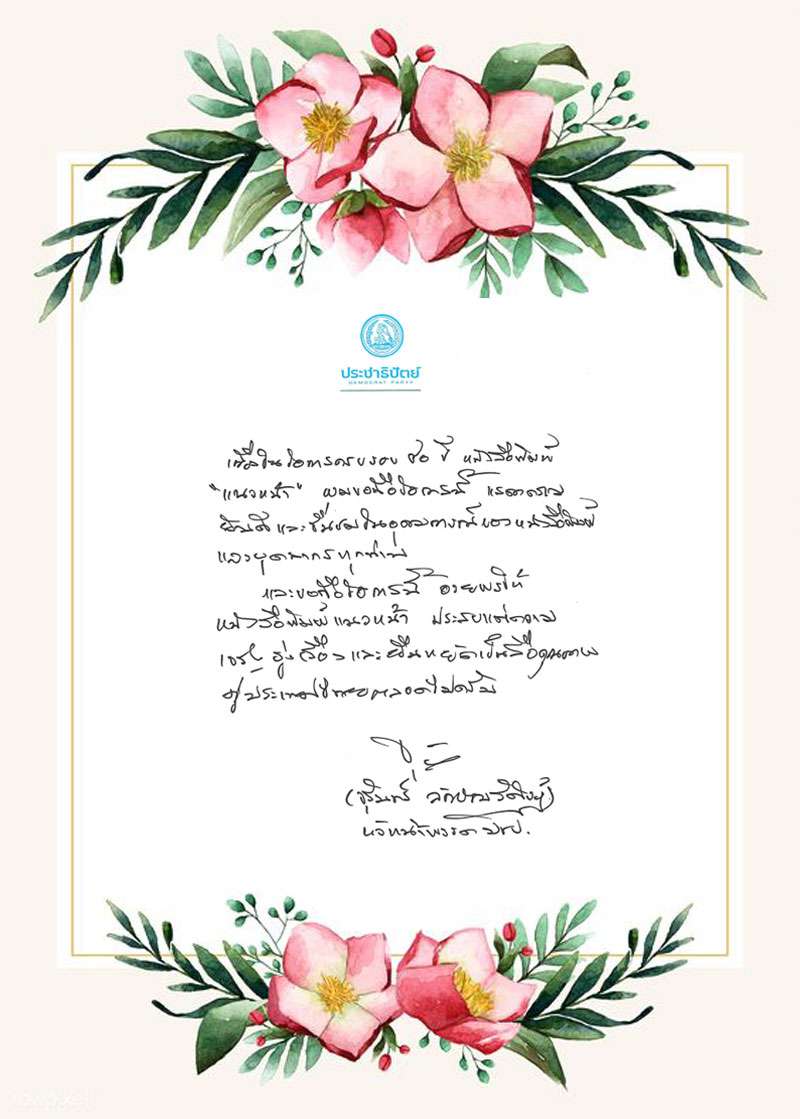 ประชาธิปัตย์
DEMOCRAT PARTY
เนื่องในโอกาสครบรอบ ปี หนังสือพิมพ์
"แนวหน้า" ผมขอถือโอกาสนี้ แสดงความ
ยินดี และชื่นชมในอุดมการณ์ของหนังสือพิมพ์
และบุคลากรทุกท่าน
และขอถือโอกาสนี้ อวยพรให้
หนังสือพิมพ์แนวหน้า ประสบแต่ความ
เจริญ รุ่งเรือง และยืนหยัดเป็นสื่อคุณภาพ
คู่ประเทศไทยตลอดไปครับ
(จุรินทร์ ลักษณวิศิษฏ์)
หัวหน้าพรรค ปชป.